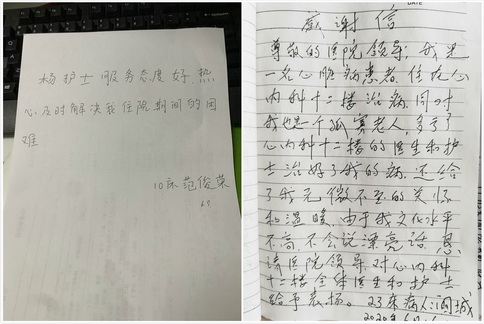 杨护士服务态度好、热
心及时解决我住院期间的困
难
10床范俊荣
DATE
感谢信
尊敬的医院领导：我是
一名心脏病患者住在心
内科十二楼治病.同时
我也是一个孤寡老人,多亏了
心内科十二楼的医生和护
士治好了我的病.还给
了我无微不至的关怀
和温暖,由于我文化水平
不高,不会说漂亮话.恳
请医院领导对心内科
十二楼全体医生和护士
给予表扬。23床病人:阎城
2020年6月